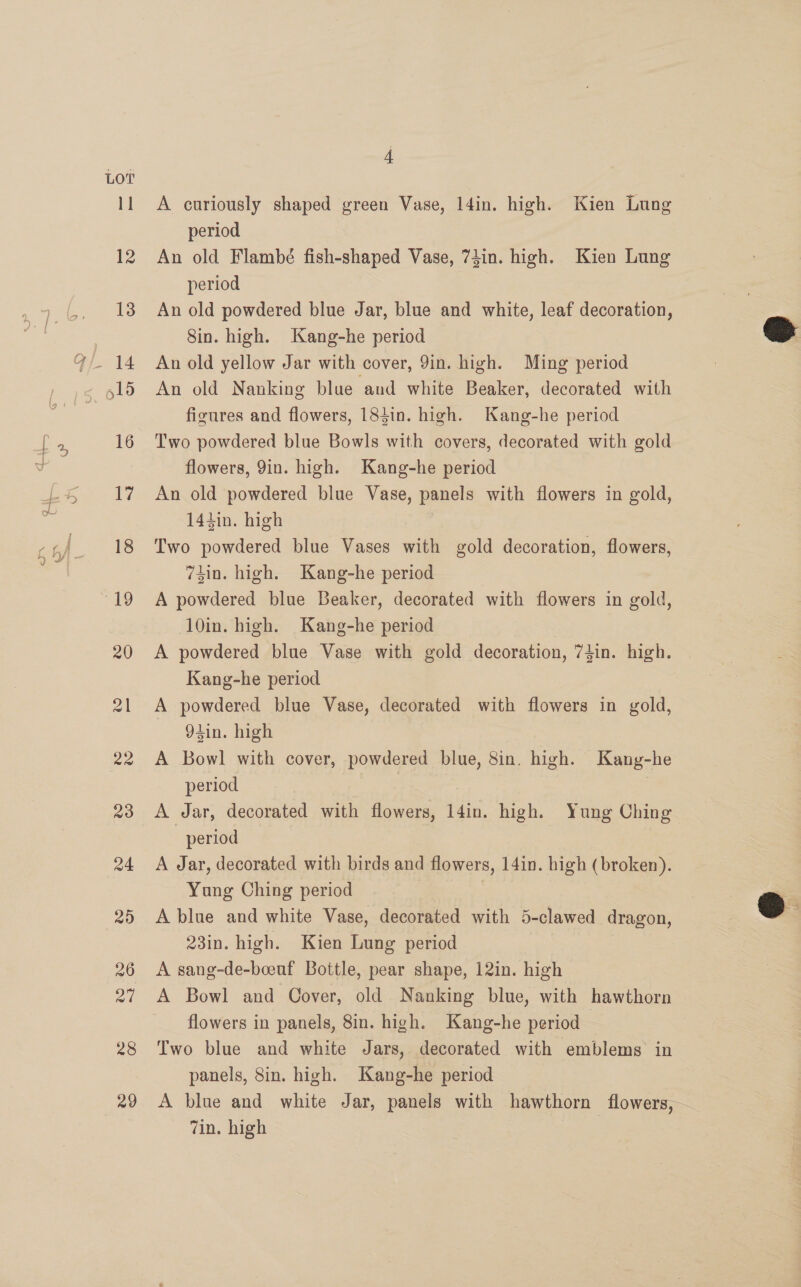 4
LOT
11 A curiously shaped green Vase, 14in. high. Kien Lung
period
12 An old Flambé fish-shaped Vase, 7½in. high. Kien Lung
period
13 An old powdered blue Jar, blue and white, leaf decoration,
8in. high. Kang-he period
14 An old yellow Jar with cover, 9in. high. Ming period
15 An old Nanking blue and white Beaker, decorated with
figures and flowers, 18½in. high. Kang-he period
16 Two powdered blue Bowls with covers, decorated with gold
flowers, 9in. high. Kang-he period
17 An old powdered blue Vase, panels with flowers in gold,
14½in. high
18 Two powdered blue Vases with gold decoration, flowers,
7½in. high. Kang-he period
19 A powdered blue Beaker, decorated with flowers in gold,
10in. high. Kang-he period
20 A powdered blue Vase with gold decoration, 7½in. high.
Kang-he period
21 A powdered blue Vase, decorated with flowers in gold,
9½in. high
22 A Bowl with cover, powdered blue, 8in. high. Kang-he
period
23 A Jar, decorated with flowers, 14in. high. Yung Ching
period
24 A Jar, decorated with birds and flowers, 14in. high (broken).
Yung Ching period
25 A blue and white Vase, decorated with 5-clawed dragon,
23in. high. Kien Lung period
26 A sang-de-bœuf Bottle, pear shape, 12in. high
27 A Bowl and Cover, old Nanking blue, with hawthorn
flowers in panels, 8in. high. Kang-he period
28 Two blue and white Jars, decorated with emblems in
panels, 8in. high. Kang-he period
29 A blue and white Jar, panels with hawthorn flowers,
7in. high